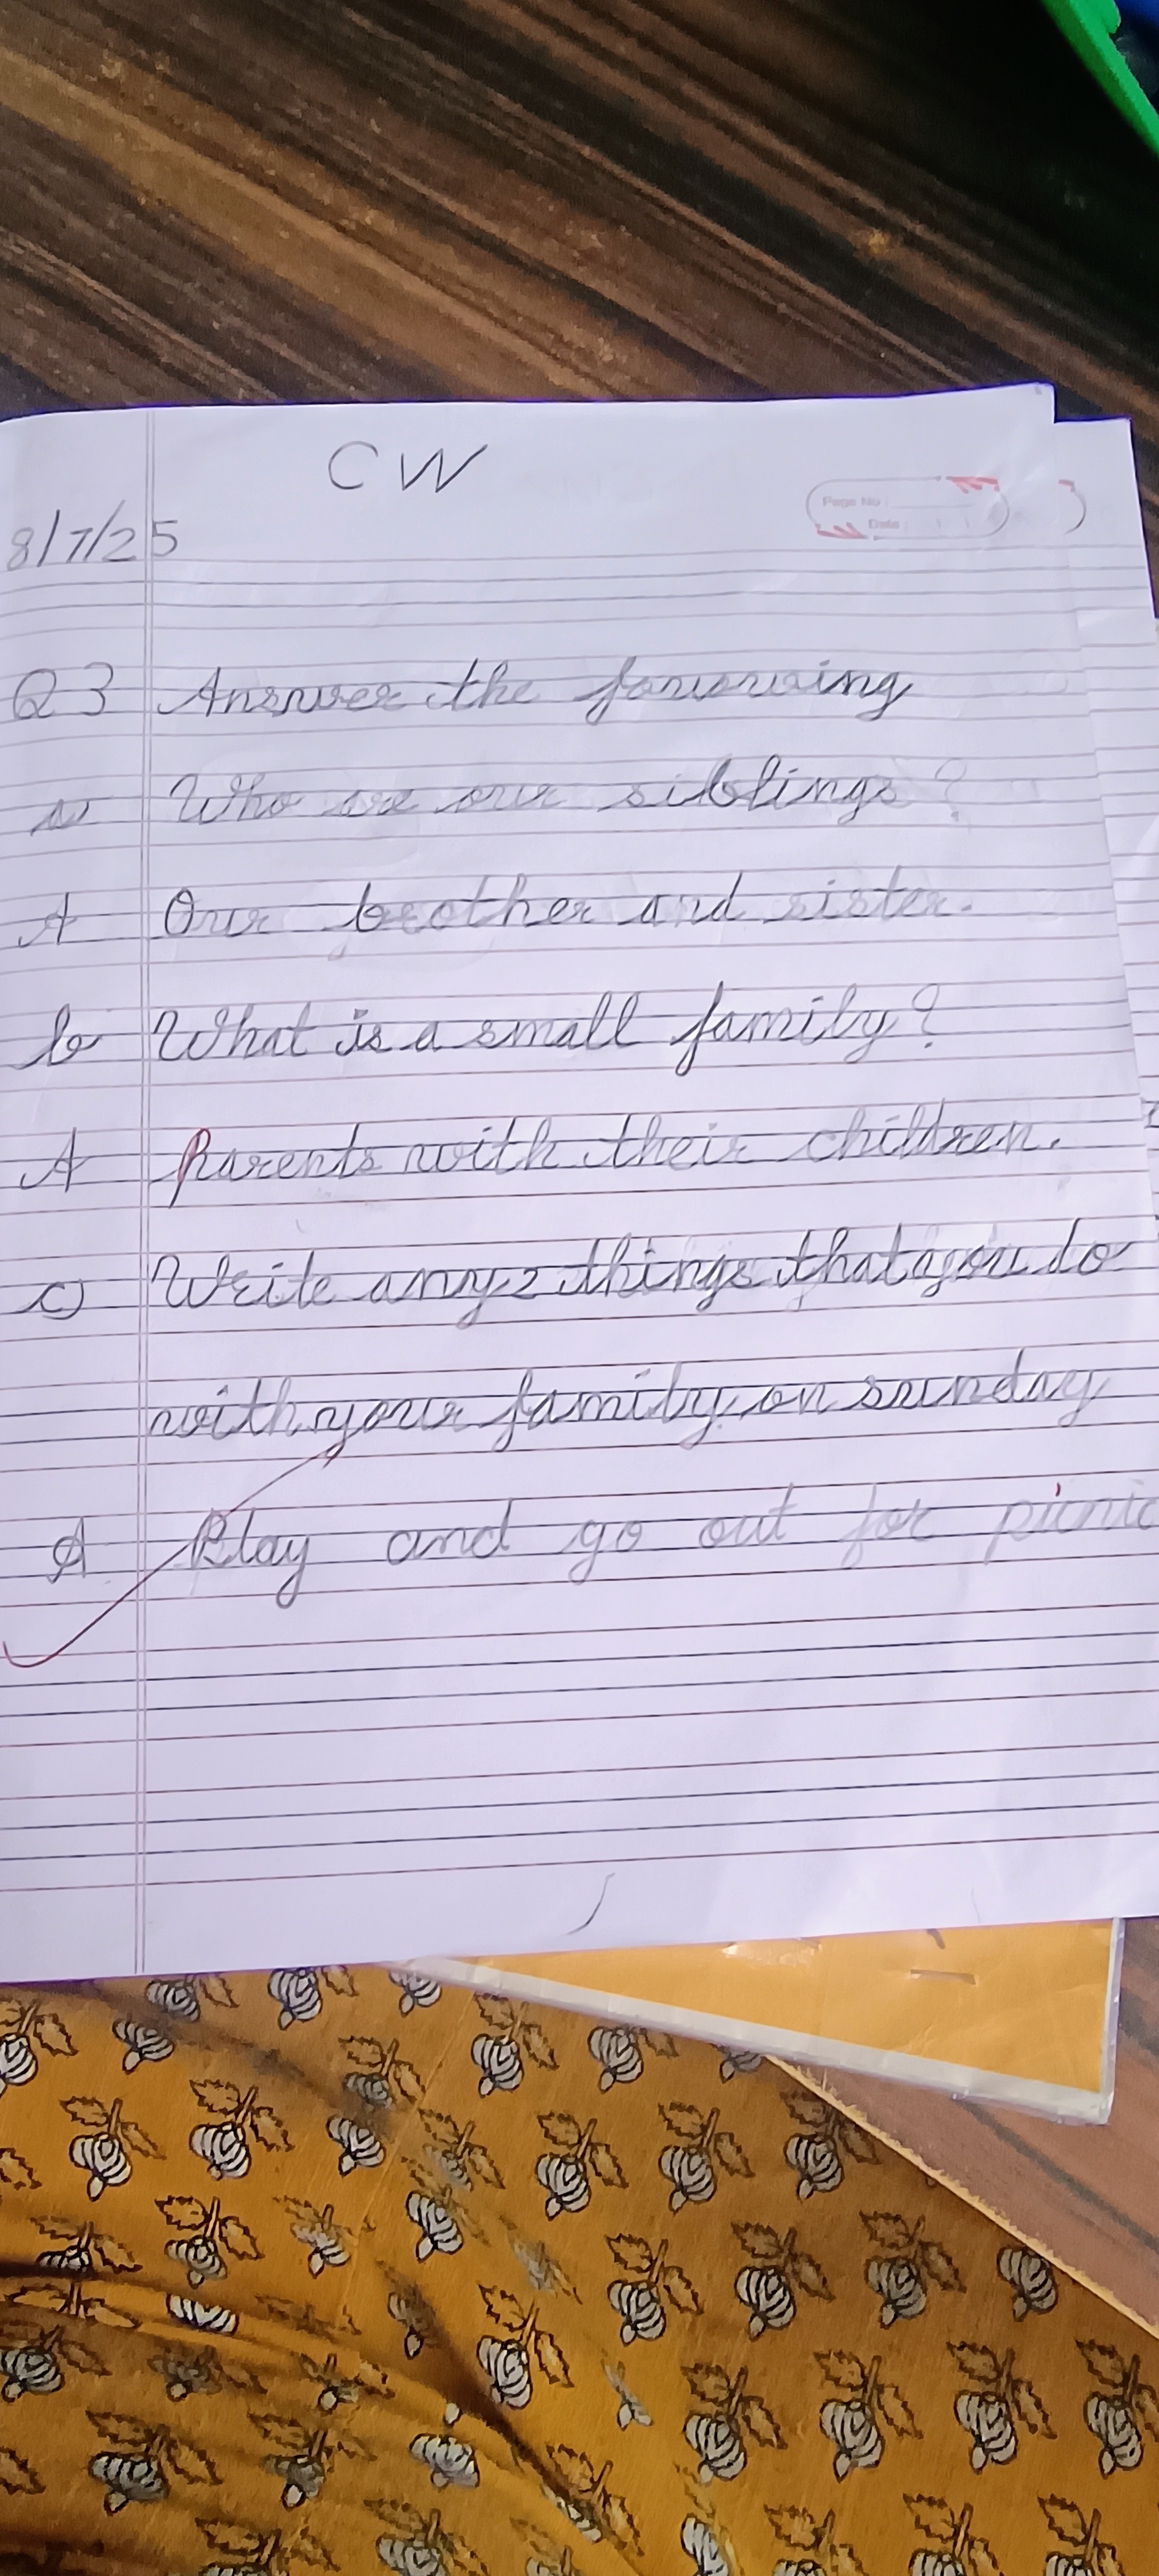 CW
Page No
Date:
8/7/25
Q3 Answer the fowowing
a Who are our siblings?
A Our brother and sister.
b What is a small family?
A Parents with their children.
c) Write any 2 things that you do
with your family on sunday
A Play and go out for picnic